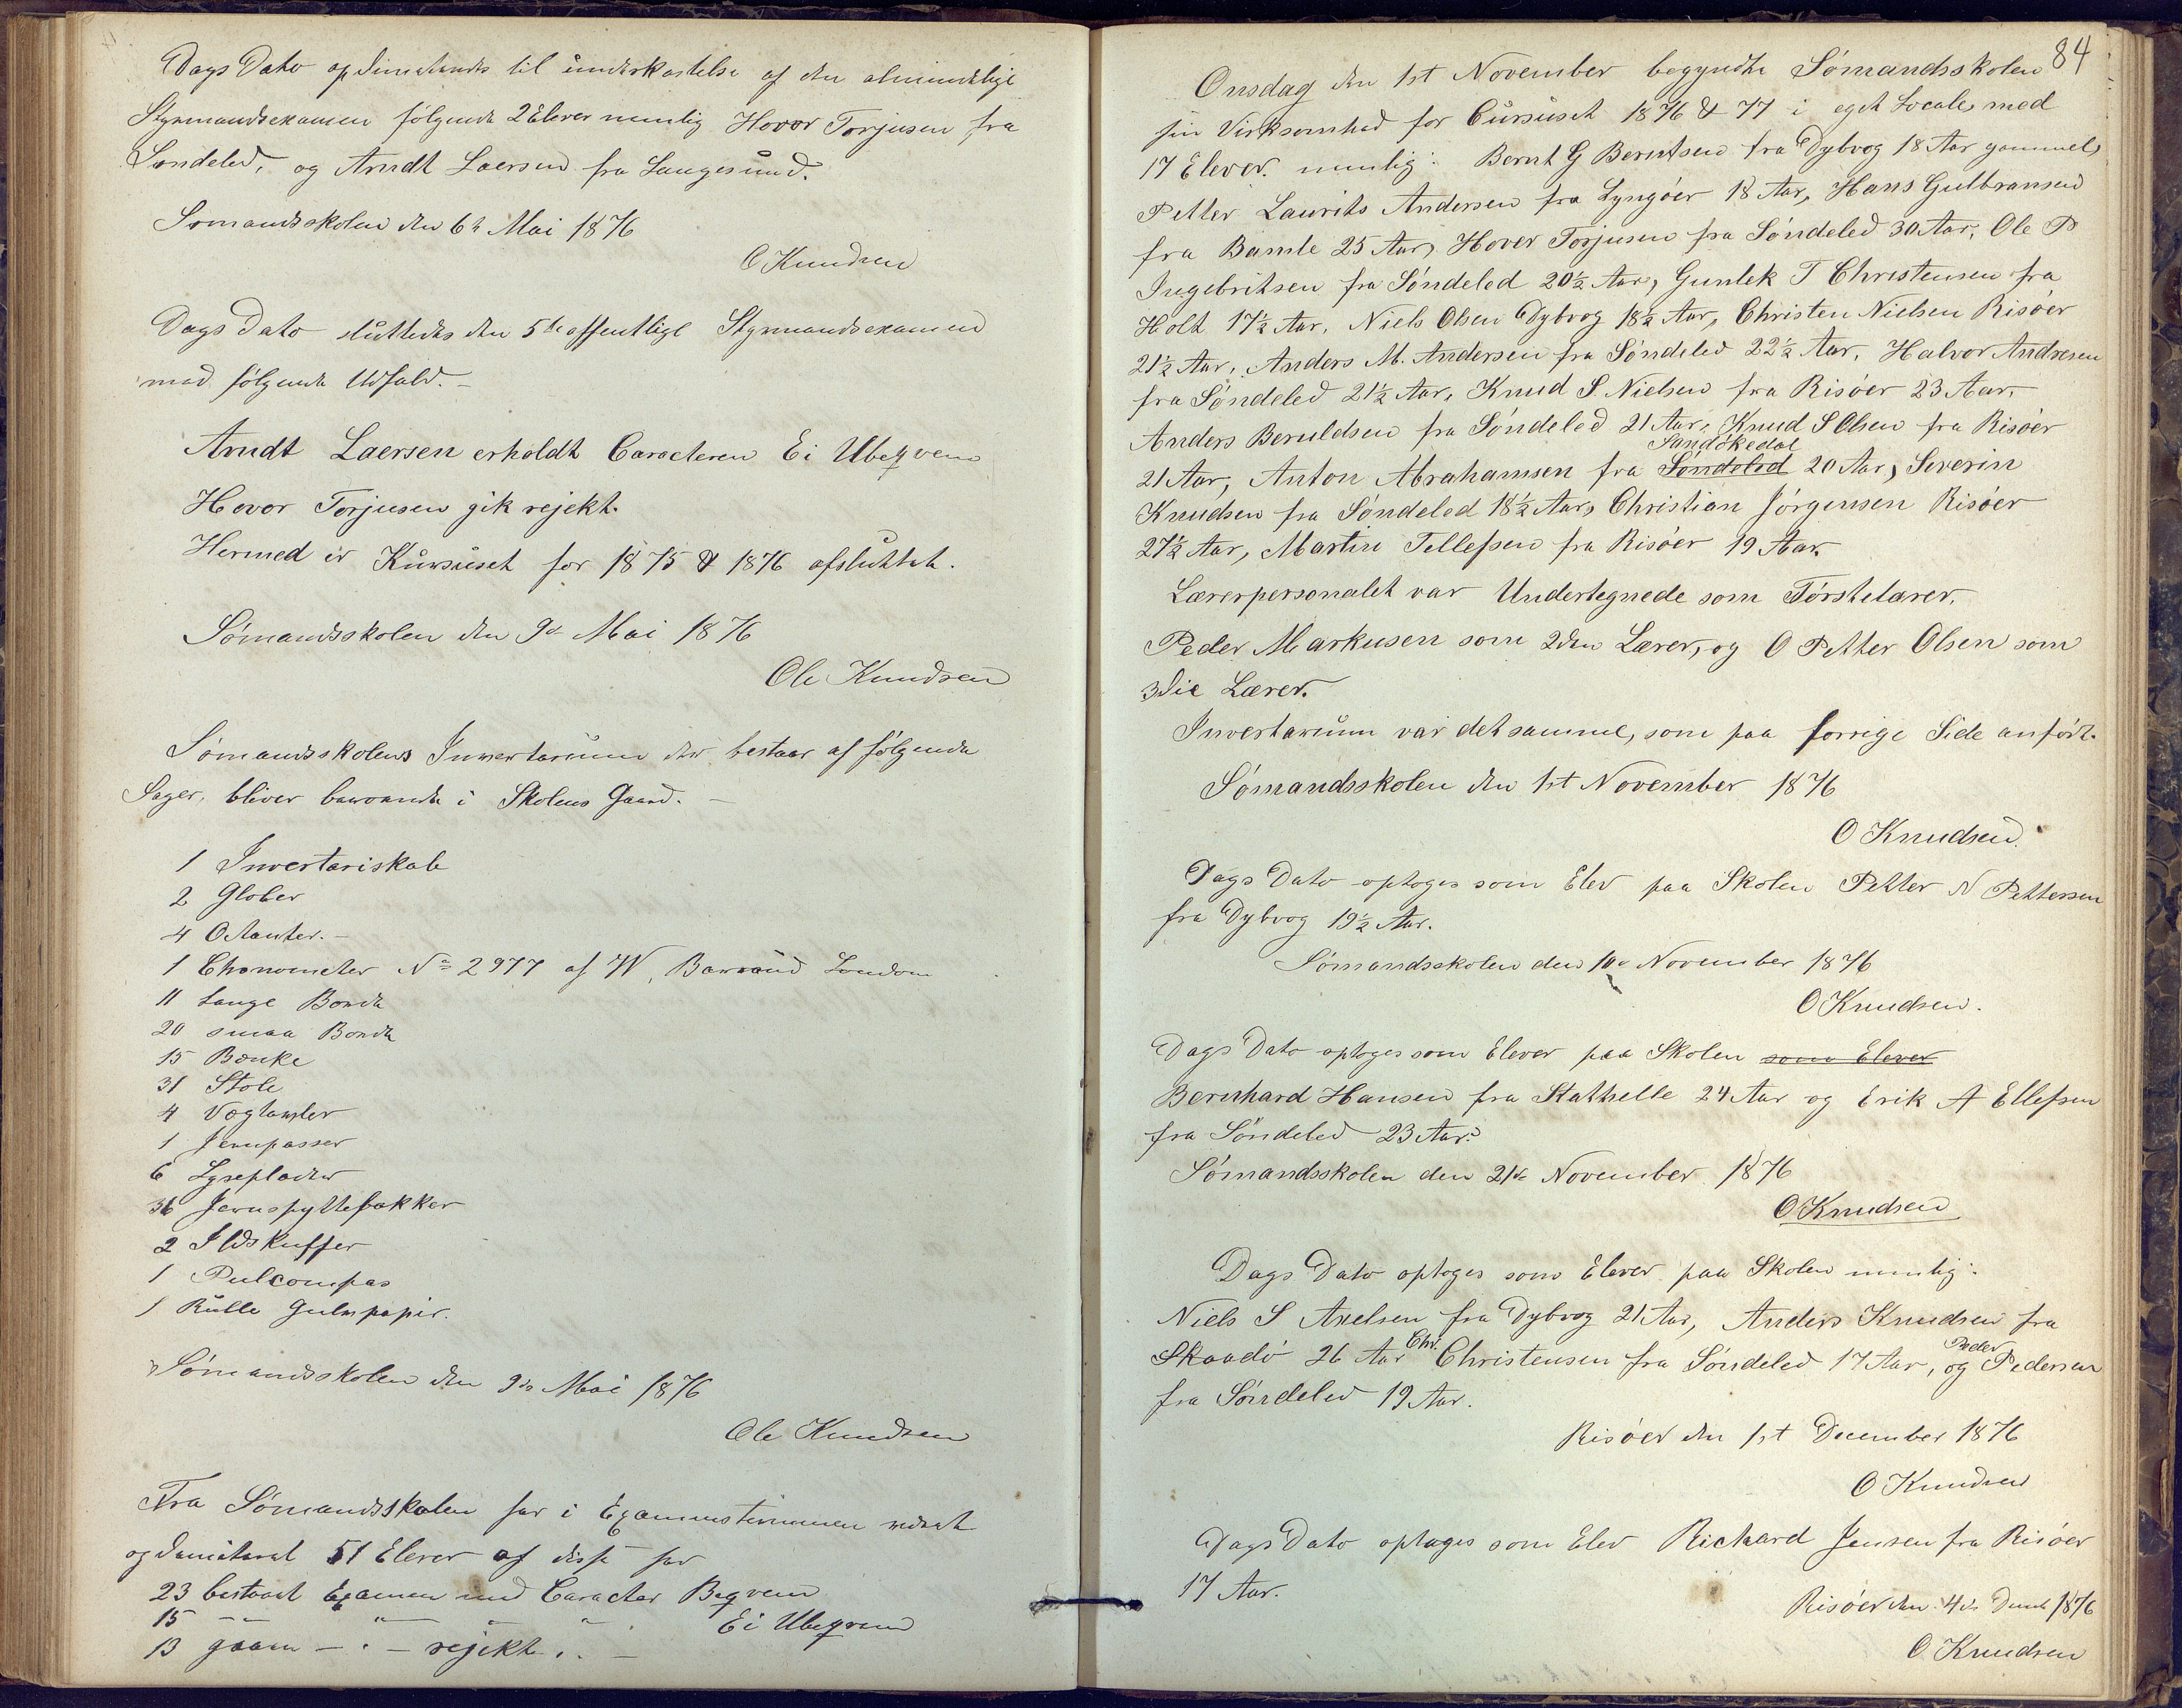 Dags Dato opdimiterades til underkastelse af den almindelige
Styrmandsexamen følgende 2 Elever nemlig Hovor Torjusen fra
Søndeled, og Arndt Laersen fra Langesund.
Sømandsskolen den 6te Mai 1876
O Knudsen
Dags Dato sluttedes den 5te offentlige Styrmandsexamen
med følgende Udfald. –
Arndt Laersen erholdt Caracteren Ei Ubeqvem
Hovor Torjusen gik rejekt.
Hermed er Kursuset for 1875 & 1876 afsluttet.
Sømandsskolen den 9de Mai 1876
Ole Knudsen
Sømandsskolens Inventarium der bestaar af følgende
Sager, bliver bervarende i Skolens Gaard. –
1 Inventariskab
2 Glober
4 Octanter. –
1 Chronometer No 2977 af W. Barraud London
11 Lange Borde
20 smaa Borde
15 Bænke
31 Stole
4 Væglamper
1 Jernpasser
6 Lyseplader
36 Jernspyttebakker
2 Ildskuffer
1 Pulcompas
1 Rulle Gulvpapir.
Sømandsskolen den 9de Mai 1876
Ole Knudsen
Fra Sømandsskolen har i Examensterminen været
opdimiteret 51 Elever af disse har
23 bestaaet Examen med Caracter Beqvem
15 –"– " " " Ei Ubeqvem
13 gaaen – " – rejekt. –
84
Onsdag den 1st November begyndte Sømandsskolen
sin Virksomhed for Cursuset 1876 & 77 i eget Locale med
17 Elever. nemlig: Bernt G Berntsen fra Dybvog 18 Aar gammel,
Petter Laurits Andersen fra Lyngøer 18 Aar, Hans Gulbransen
fra Bamle 25 Aar, Hover Torjusen fra Søndeled 30 Aar, Ole P
Ingebritsen fra Søndeled 20½ Aar, Gunlek T Christensen fra
Holt 17½ Aar, Niels Olsen Dybvog 18½ Aar, Christen Nielsen Risøer
21½ Aar, Anders M. Andersen fra Søndeled 22½ Aar, Halvor Andresen
fra Søndeled 21½ Aar, Knud S. Nielsen fra Risøer 23 Aar,
Anders Beruldsen fra Søndeled 21 Aar, Knud S Olsen fra Risøer
Sandøkedal
21 Aar, Anton Abrahamsen fra Søndeled 20 Aar, Severin
Knudsen fra Søndeled 18½ Aar, Christian Jørgensen Risøer
27½ Aar, Martin Tellefsen fra Risøer 19 Aar.
Lærerpersonalet var Undertegnede som Førstelærer,
Peder Markusen som 2den Lærer, og O Petter Olsen som
3die Lærer.
Inventarium var det samme, som paa forrige Side anført.
Sømandsskolen den 1st November 1876
O Knudsen.
Dags Dato optoges som Elev paa Skolen Petter N Pettersen
fra Dybvog 19½ Aar.
Sømandsskolen den 10de November 1876
O Knudsen.
Dags Dato optoges som Elever paa Skolen som Elever
Bernhard Hansen fra Stathelle 24 Aar og Erik A Ellefsen
fra Søndeled 23 Aar.
Sømandsskolen den 21de November 1876
O Knudsen
Dags Dato optoges som Elever paa Skolen nemlig:
Niels S Axelsen fra Dybvog 21 Aar, Anders Knudsen fra
Chr. Peder
Skaadø 26 Aar Christensen fra Søndeled 17 Aar, og Pedersen
fra Søndeled 19 Aar.
Risøer den 1st December 1876
O Knudsen
Dags Dato optages som Elev Richard Jensen fra Risøer
17 Aar.
Risøer den 4de Decmb 1876
O Knudsen